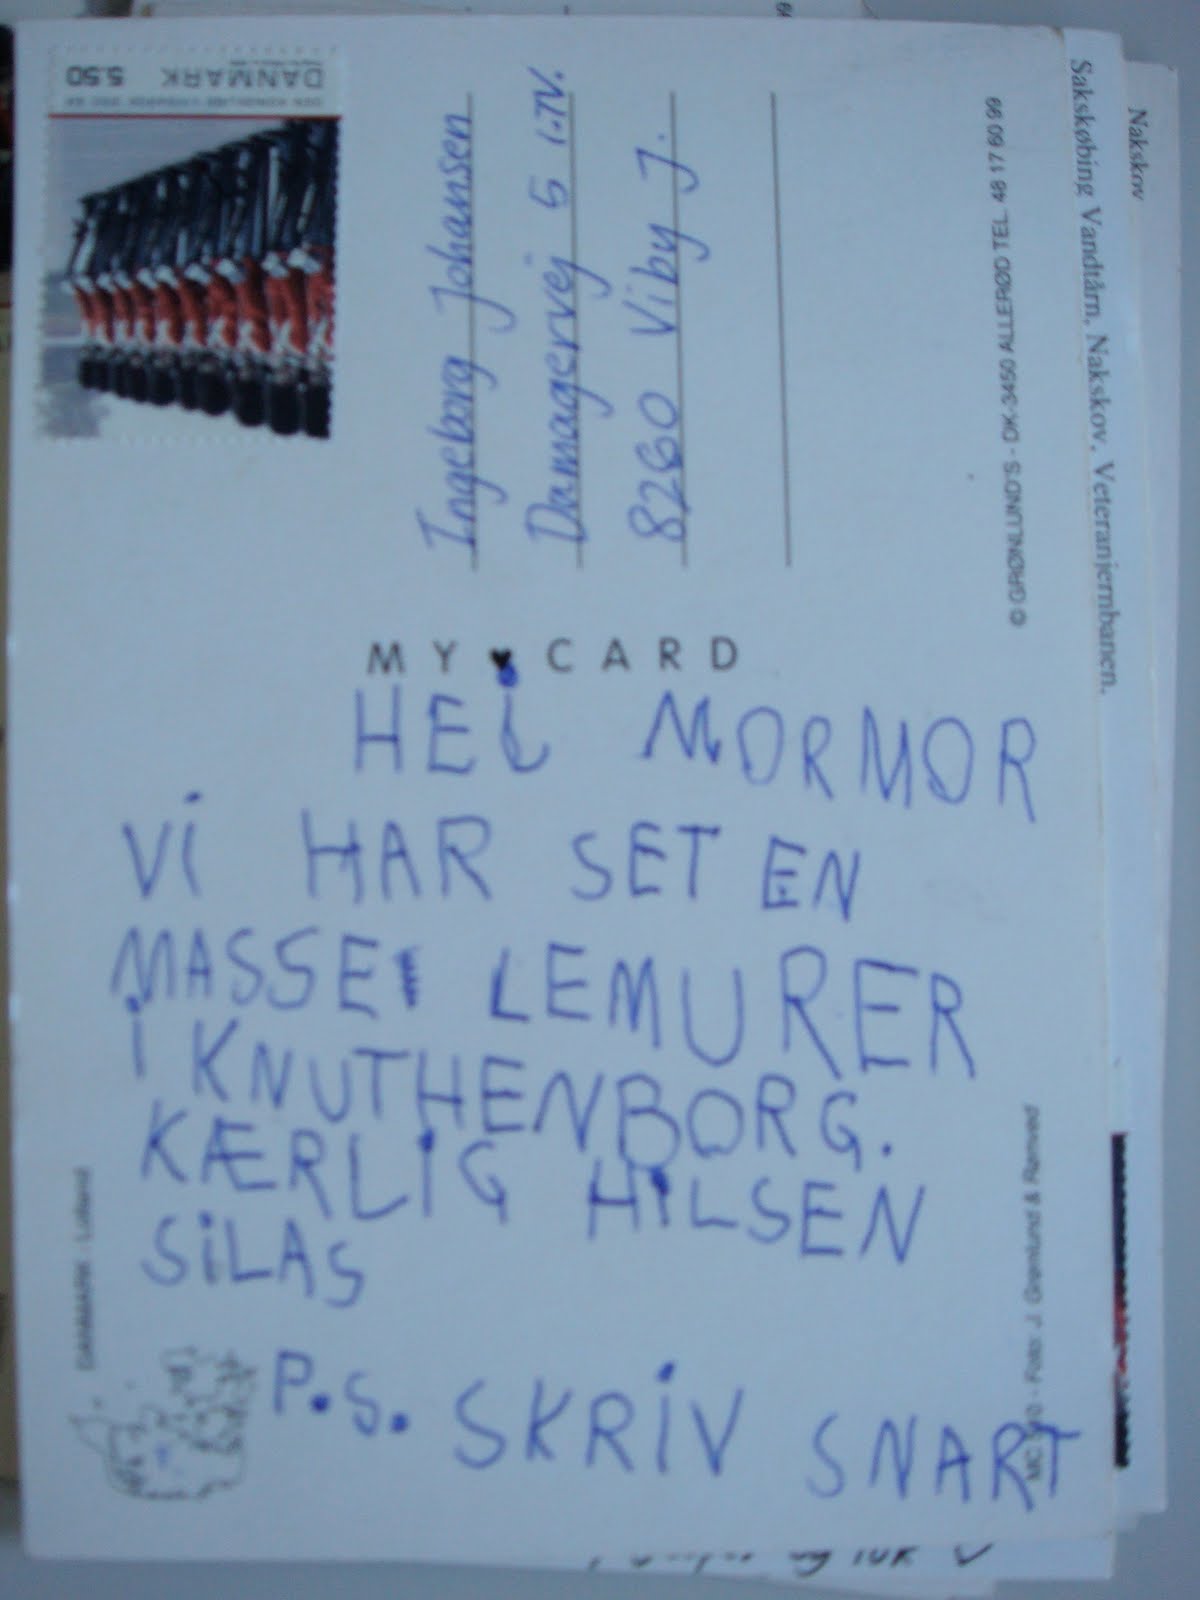 HEJ MORMOR
Vi HAR SET EN
MASSE LEMURER
i KNUTHENBORG.
KÆRLIG HILSEN
SiLAS
P.S. SKRiV SNART
MY ♥ CARD
Ingeborg Johansen
Damagervej 5 1.TV.
8260 Viby J.
DANMARK 5.50
DANMARK - Lolland
© GRØNLUND'S - DK-3450 ALLERØD TEL. 48 17 60 99
Foto: J. Grønlund & Remved
Sakskøbing Vandtårn, Nakskov, Veteranjernbanen.
Nakskov